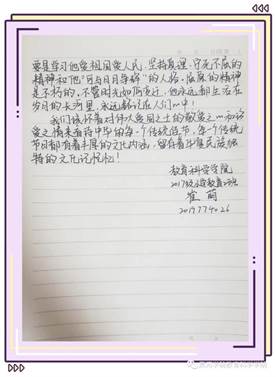 要是学习他爱祖国爱人民，坚持真理，宁死不屈的
精神和他"可与日月争辉"的人格。屈原的精神
是不朽的。不管时光如何变迁，他永远都生活在
岁月的长河里，永远都活在人们心中！
我们该怀着对伟人爱国之士的敬爱之心和诊
爱之情来看待中华的每一个传统节，每个传统
节日都有着丰厚的文化内涵，留存着中华民族独
特的文化记忆！
教育科学学院
2017级小学教育
崔丽